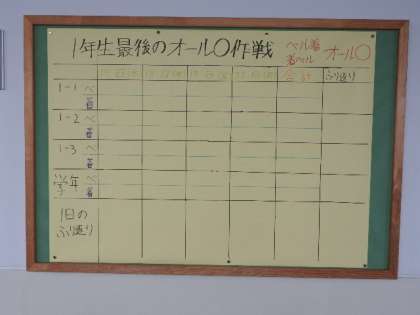 1年生最後のオール〇作戦
ベル着
着ベル
オール〇
合計
ふり返り
1-1
ベ
着
1-2
ベ
着
1-3
ベ
着
学年
ベ
着
1日の
ふり返り